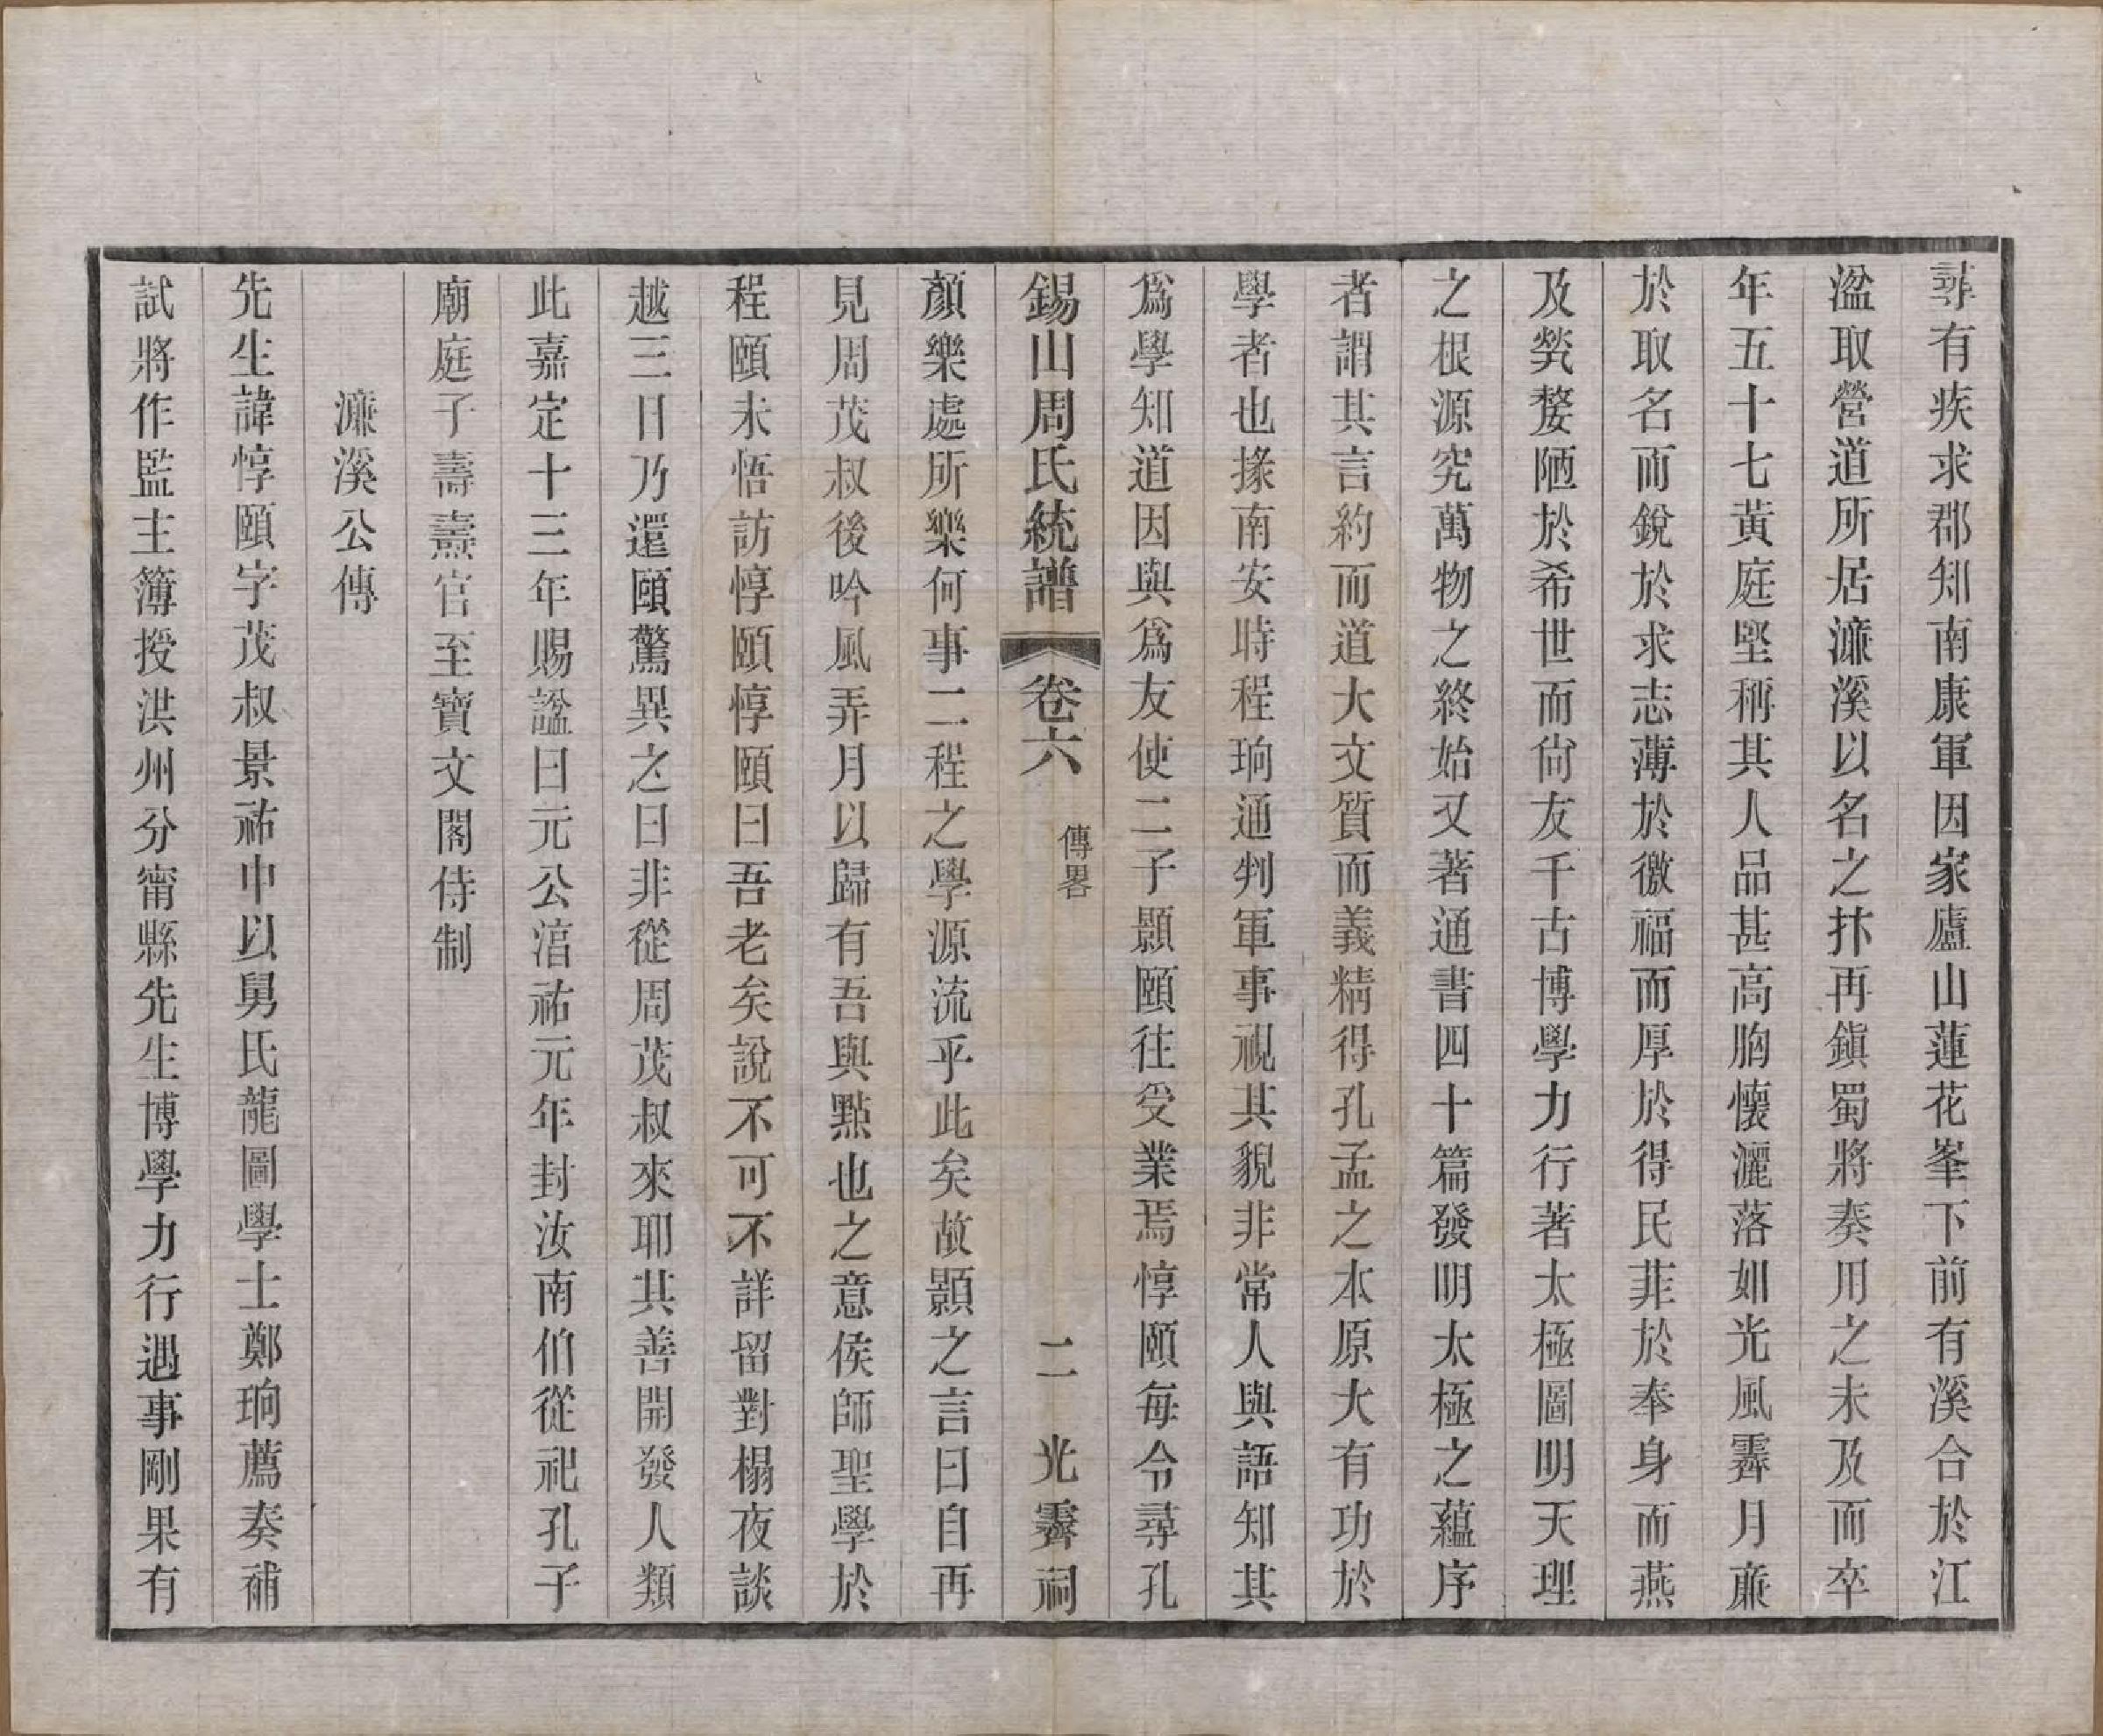 尋有疾求郡知南康軍因家廬山蓮花峯下前有溪合於江
湓取營道所居濂溪以名之抃再鎮蜀將奏用之未及而卒
年五十七黃庭堅稱其人品甚高胸懷灑落如光風霽月廉
於取名而銳於求志薄於徼福而厚於得民菲於奉身而燕
及煢嫠陋於希世而尙友千古博學力行著太極圖明天理
之根源究萬物之終始又著通書四十篇發明太極之蘊序
者謂其言約而道大文質而義精得孔孟之本原大有功於
學者也掾南安時程珦通判軍事視其貌非常人與語知其
爲學知道因與爲友使二子顥頤往受業焉惇頤每令尋孔
錫山周氏統譜 卷六 傳畧 二 光霽祠
顏樂處所樂何事二程之學源流乎此矣故顥之言曰自再
見周茂叔後吟風弄月以歸有吾與點也之意侯師聖學於
程頤未悟訪惇頤惇頤曰吾老矣說不可不詳留對榻夜談
越三日乃還頤驚異之曰非從周茂叔來耶其善開發人類
此嘉定十三年賜諡曰元公淯祐元年封汝南伯從祀孔子
廟庭子壽燾官至寶文閣侍制
濂溪公傳
先生諱惇頤字茂叔景祐中以舅氏龍圖學士鄭珦薦奏補
試將作監主簿授洪州分甯縣先生博學力行遇事剛果有